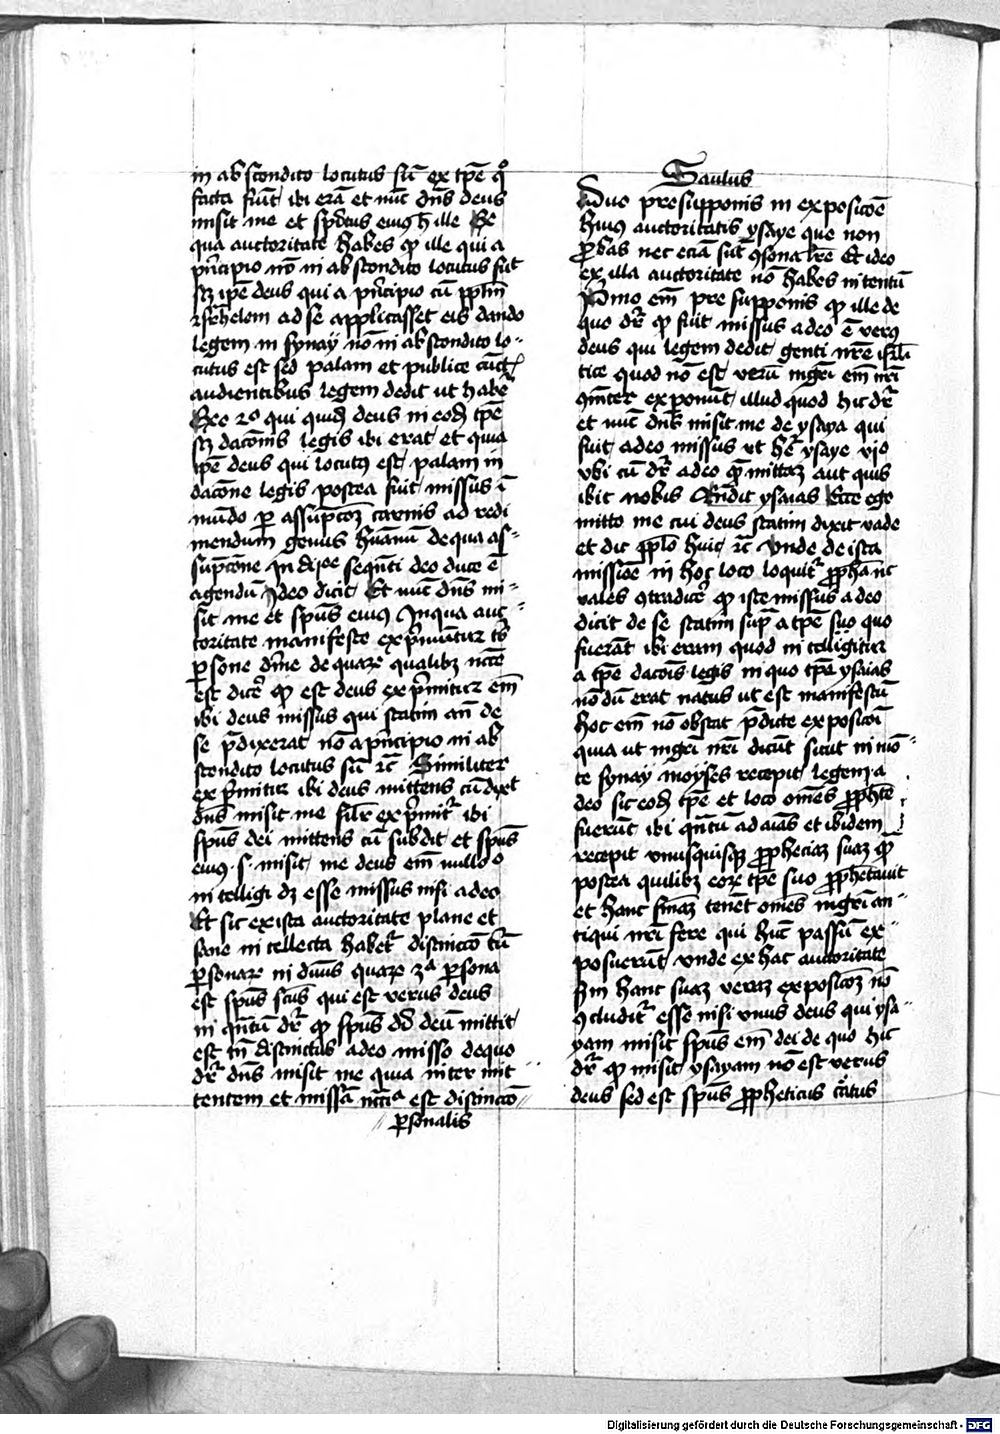 in abscondito locutus sū ex tꝑe qͦ
facta fiūt ibi erā et nūc dn̄s deus
misit me et sp̄ctus eius h ille Ex
qua auctoritate habes ꝙ ille qui a
p̄ncipio nō in abscondito locutus fūt
sꝫ ip̄e deus qui a p̄ncipio cū pplm̄
ad se applicasset eis dando
legem in synay nō in abscondito lo-
cutus est sed palam et publice cūct
audientibus legem dedit ut habē
qui quid deus in eodē tꝑe
sꝫ dacōnis legis ibi erat et quia
ip̄e deus qui locutus est palam in
dacōne legis postea fuit missus ī
mūdo ꝑ assūpcōeꝫ carnis ad redi
mendum genus hūanū de qua as-
sūpcōne In sequn̄ti deo duce ē
agendū Ideo dicit Et nūc dn̄s mi-
sit me et spūs eius In qua auc-
toritate manifeste exp̄muntur
ꝑsone de quaꝝ qualibꝫ
est dicē ꝙ est deus exp̄mitur em̄
ibi deus missus qui statim an̄ de
se p̄dixerat nō a p̄ncipio in ab
scondito locutus sū ꝛc̄ Similiter
exp̄mitur ibi deus mittens cū dixit
dn̄s misit me exp̄mitr̄ ibi
spūs dei mittens cū subdit et spūs
eius ·s· misit me deus em̄ nullo
intelligi dꝫ esse missus nisi a deo
Et sic ex ista auctoritate plane et
sane intellecta habetr̄ distinccō
ꝑsonaꝝ in diuīs quaꝝ 3ᵃ ꝑsona
est spūs scūs qui est verus deus
in qn̄tū dr̄ ꝙ spūs deū mittit
est tn̄ distinctus a deo misso de quo
dr̄ dn̄s misit me quia inter mit
tentem et missū est distinccō
ꝑsonalis
Saulus
Duo presupponis in exposicōe
huius auctoritatis ysaye que non
ꝓbas nec eciā sūt ꝯsona lr̄e Et ideo
ex illa auctoritate nō habes intentū
Primo em̄ presupponis ꝙ ille de
quo dr̄ ꝙ fuit missus a deo ē verus
deus qui legem dedit genti nr̄e isrl̄i
tice quod nō est verū mgr̄i em̄ nr̄i
exponūt illud quod hic dr̄
et nūc dn̄s misit me de ysaya qui
fuit a deo missus ut hr̄ ysaye vjo
vbi cū dr̄ a deo quē mittaꝫ aut quis
ibit nobis Rn̄dit ysaias Ecce ego
mitto me cui deus statim dixit vade
et dic pplo huic ꝛc̄ Unde de ista
missiōe in hoc loco loquitr̄ ꝓpha nec
vales ꝯtradicē ꝙ iste missus a deo
dicit de se statim suꝑ a tꝑe suo quo
fuerāt ibi eram quod intelligitur
a tꝑe dacōis legis in quo tꝑe ysaias
nōdū erat natus ut est manifestū
hoc em̄ nō obstat p̄dicte exposicōi
quia ut mgr̄i nr̄i dicūt sicut in mō-
te synay moyses recepit legem a
deo sic eodē tꝑe et loco om̄es ꝓphete
fuerūt ibi qn̄tū ad aīas et ibidem
recepit vnusquisqꝫ ꝓpheciaꝫ suaꝫ quā
postea quilibꝫ eoꝝ tꝑe suo ꝓphetauit
et hanc sniaꝫ tenēt om̄es mgr̄i an-
tiqui nr̄i fere qui hūc passū ex-
posuerūt vnde ex hac auctoritate
scdm̄ hanc suaꝫ veraꝫ exposicōꝫ nō
ꝯcluditr̄ esse nisi vnus deus qui ysa-
yam misit spūs em̄ dei de quo hic
dr̄ ꝙ misit ysayam nō est verus
deus sed est spūs ꝓpheticus cātus
Digitalisierung gefördert durch die Deutsche Forschungsgemeinschaft - DFG